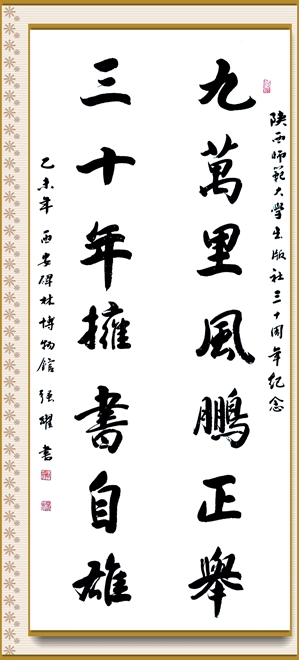 陝西師範大學出版社三十周年纪念
九萬里風鵬正舉
三十年擁書自雄
乙未年 西安碑林博物館 强耀書